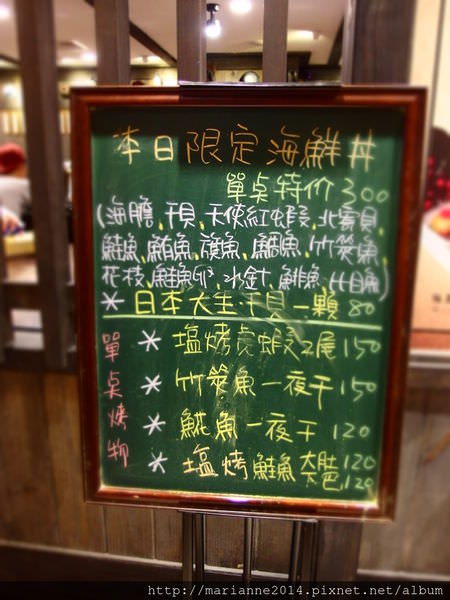 本日限定海鮮丼
單点特价300
(海膽、干貝、天使紅蝦、北寄貝、
鮭魚、鮪魚、旗魚、鯛魚、竹筴魚、
花枝、鮭魚卵、水針、鯡魚、比目魚)
* 日本大生干貝一顆 80
單点烤物
* 塩烤虎蝦2尾 150
* 竹筴魚一夜干 150
* 魚一夜干 120
* 塩烤鮭魚 120
120
http://marianne2014.pixnet.net/album